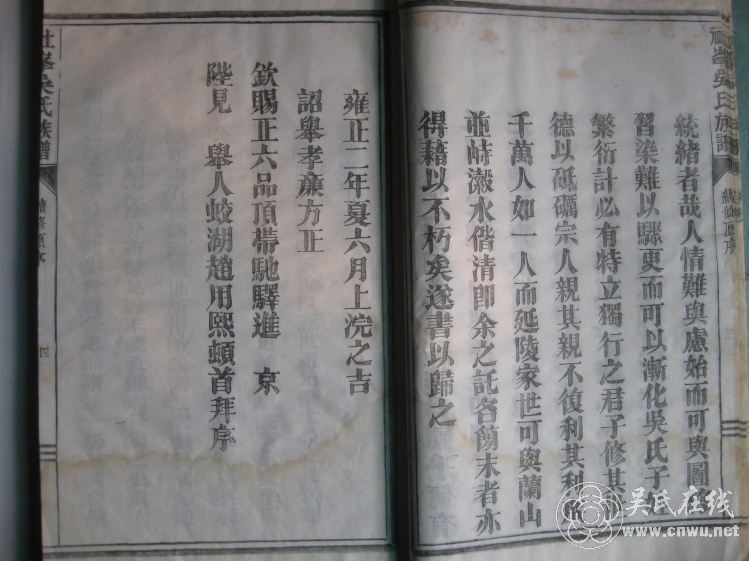 吳氏族譜
統緒者哉人情難與慮始而可與圖
習染難以驟更而可以漸化吳氏子
繁衍計必有特立獨行之君子修其
德以砥礪宗人親其親不復利其利
千萬人如一人而延陵家世可與蘭山
並峙瀫水偕清卽余之託名簡末者亦
得藉以不朽矣遂書以歸之
雍正二年夏六月上浣之吉
詔舉孝廉方正
欽賜正六品頂帶馳驛進 京
陛見 舉人蛟湖趙用熙頓首拜序
社峯吳氏族譜
續修原序
四
吳氏在线
www.cnwu.net